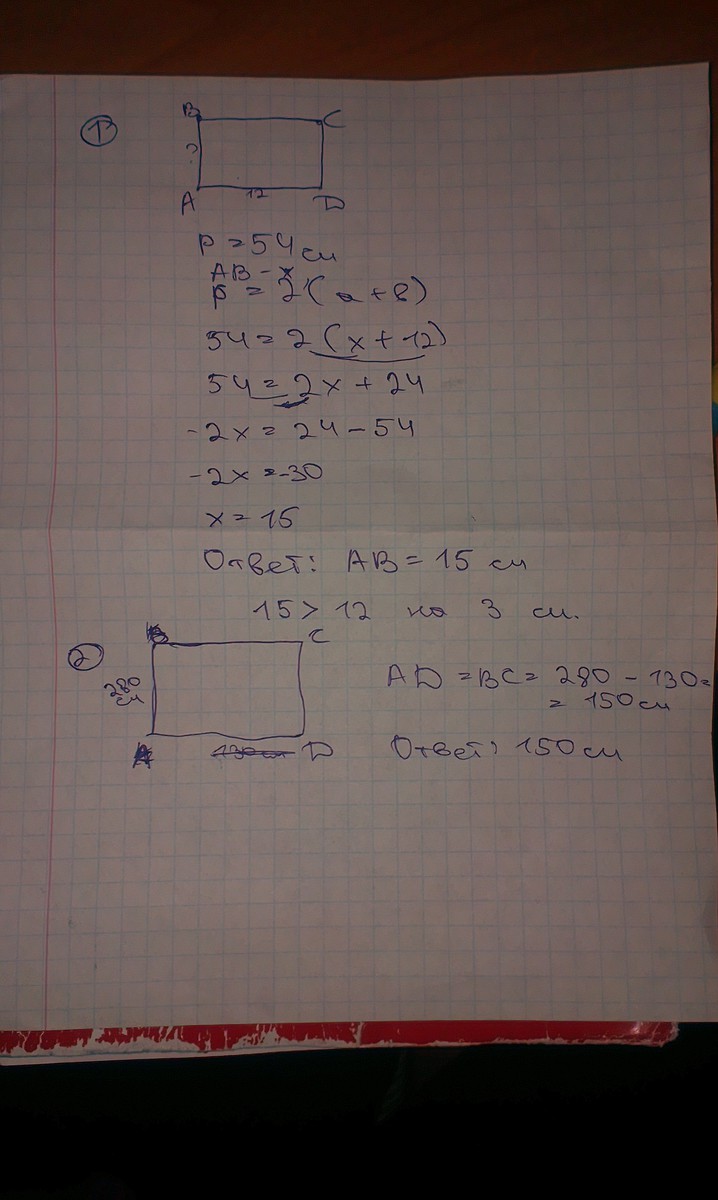 1
B C
?
A 12 D
P = 54 см
AB - x
P = 2(a + в)
54 = 2(x + 12)
54 = 2x + 24
-2x = 24 - 54
-2x = -30
x = 15
Ответ: AB = 15 см
15 > 12 на 3 см.
2
B C
280 см
A 130 см D
AD = BC = 280 - 130 =
= 150 см
Ответ: 150 см